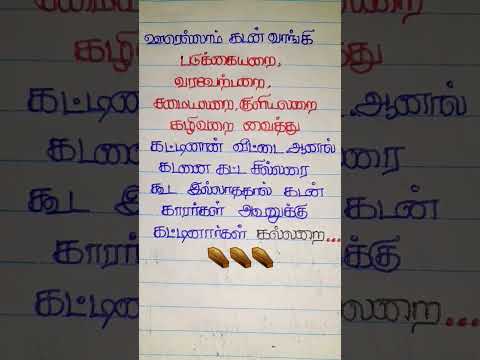 ஊரெல்லாம் கடன் வாங்கி
படுக்கையறை,
வரவேற்பறை,
சமையலறை, குளியலறை
கழிவறை வைத்து
கட்டினான் வீட்டை ஆனால்
கடனை கட்ட சில்லரை
கூட இல்லாததால் கடன்
காரர்கள் அவனுக்கு
கட்டினார்கள் கல்லறை...